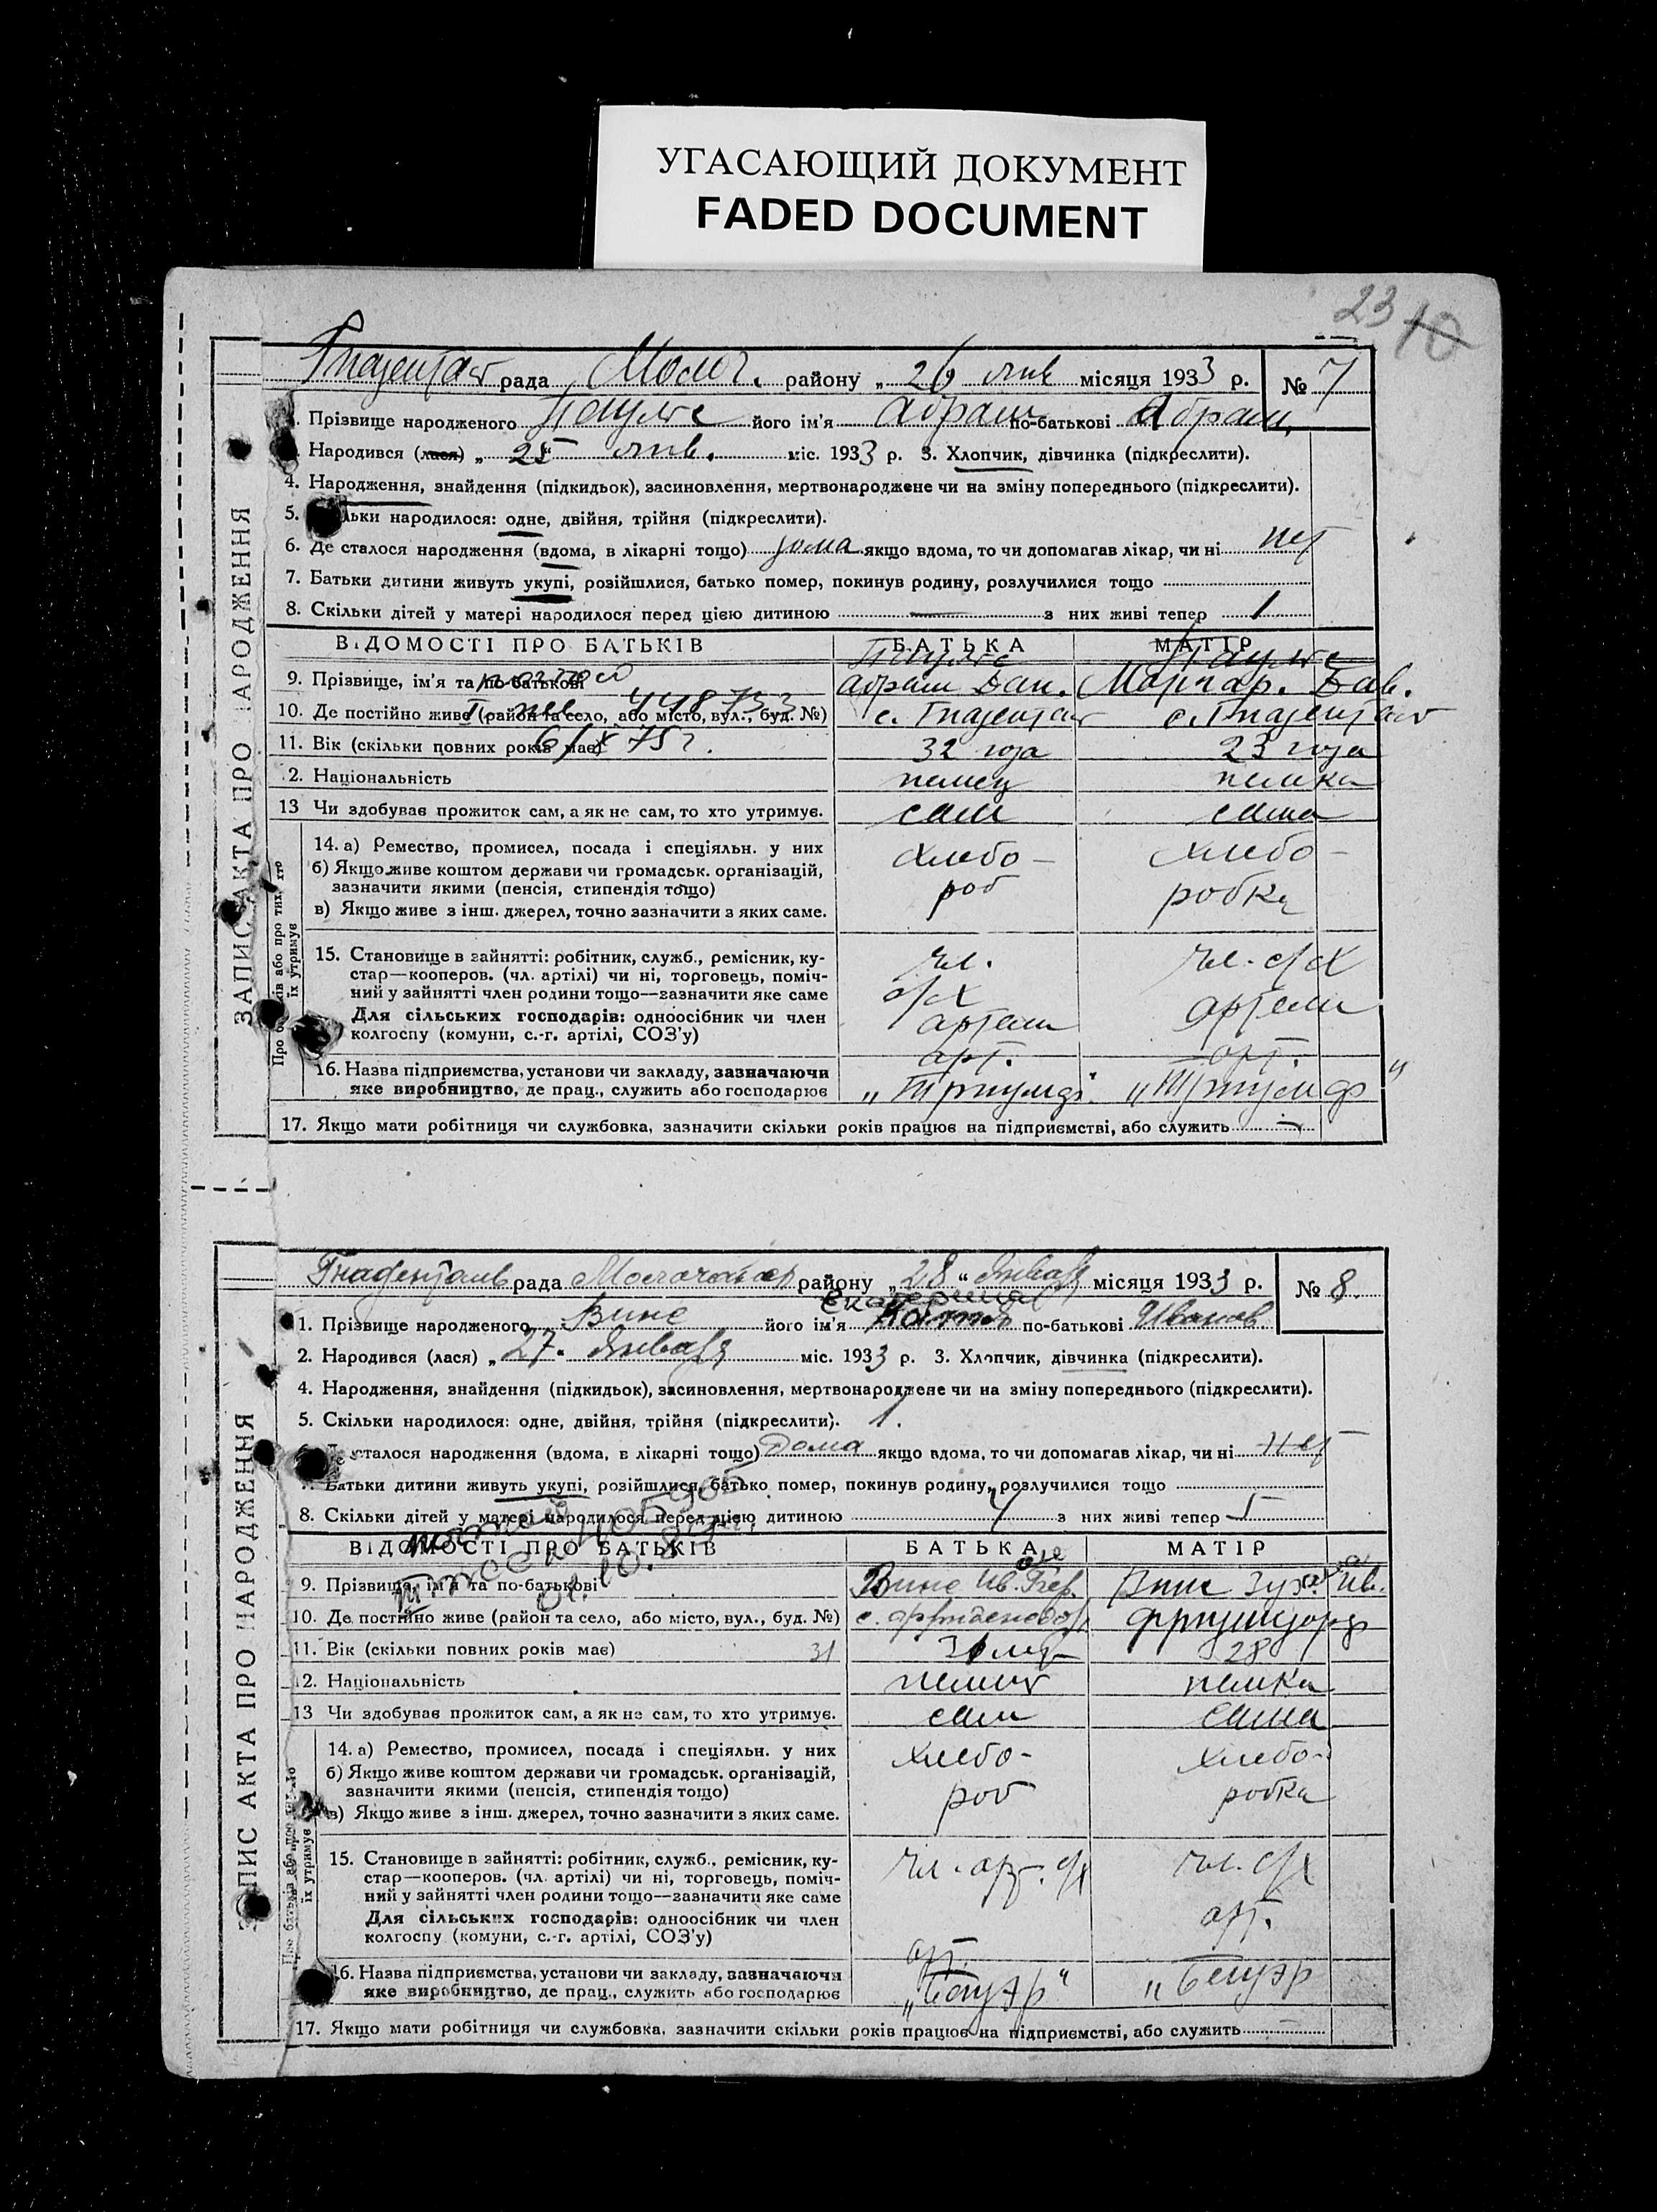 УГАСАЮЩИЙ ДОКУМЕНТ
FADED DOCUMENT
23 10
ЗАПИС АКТА ПРО НАРОДЖЕННЯ
рада Молоч. району „ 26 янв місяця 1933 р. № 7
Прізвище народженого його ім'я Абрам по-батькові Абрам.
Народився (лася) „ 25 " янв. міс. 1933 р. 3. Хлопчик, дівчинка (підкреслити).
4. Народження, знайдення (підкидьок), засиновлення, мертвонароджене чи на зміну попереднього (підкреслити).
5. льки народилося: одне, двійня, трійня (підкреслити).
6. Де сталося народження (вдома, в лікарні тощо) дома якщо вдома, то чи допомагав лікар, чи ні нет
7. Батьки дитини живуть укупі, розійшлися, батько помер, покинув родину, розлучилися тощо
8. Скільки дітей у матері народилося перед цією дитиною — з них живі тепер 1
ВІДОМОСТІ ПРО БАТЬКІВ БАТЬКА МАТІР
9. Прізвище, ім'я та по-батькові Абрам Дав. Маргар. Дав.
10. Де постійно живе (район та село, або місто, вул., буд. №) с. Гнадентал с. Гнадентал
11. Вік (скільки повних років має) 32 года 23 года
6/X 75 г.
12. Національність немец немка
13 Чи здобуває прожиток сам, а як не сам, то хто утримує. сам сама
Про батьків або про тих, хто їх утримує
14. а) Ремество, промисел, посада і спеціяльн. у них хлебо- хлебо-
б) Якщо живе коштом держави чи громадськ. організацій,
зазначити якими (пенсія, стипендія тощо) роб робка
в) Якщо живе з інш. джерел, точно зазначити з яких саме.
15. Становище в зайнятті: робітник, служб., ремісник, ку- чл. чл. с/х
стар—кооперов. (чл. артілі) чи ні, торговець, поміч-
ний у зайнятті член родини тощо—зазначити яке саме с/х
Для сільських господарів: одноосібник чи член артели артели
колгоспу (комуни, с.-г. артілі, СОЗ'у)
арт. арт.
16. Назва підприємства, установи чи закладу, зазначаючи
яке виробництво, де прац., служить або господарює „Триумф" „Триумф"
17. Якщо мати робітниця чи службовка, зазначити скільки років працює на підприємстві, або служить —
ЗАПИС АКТА ПРО НАРОДЖЕННЯ
рада району „ 28 " Января місяця 1933 р. № 8.
Екатерина
1. Прізвище народженого Винс його ім'я по-батькові Иванов
2. Народився (лася) „ 27 " Января міс. 1933 р. 3. Хлопчик, дівчинка (підкреслити).
4. Народження, знайдення (підкидьок), засиновлення, мертвонароджене чи на зміну попереднього (підкреслити).
5. Скільки народилося: одне, двійня, трійня (підкреслити). 1.
сталося народження (вдома, в лікарні тощо) Дома якщо вдома, то чи допомагав лікар, чи ні нет
Батьки дитини живуть укупі, розійшлися, батько помер, покинув родину, розлучилися тощо
8. Скільки дітей у матері народилося перед цією дитиною 4 з них живі тепер 5
ВІДОМОСТІ ПРО БАТЬКІВ БАТЬКА МАТІР
9. Прізвище, ім'я та по-батькові Винс Ив. Винс Ив.
10. Де постійно живе (район та село, або місто, вул., буд. №)
11. Вік (скільки повних років має) 31 31 28
12. Національність немец немка
13 Чи здобуває прожиток сам, а як не сам, то хто утримує. сам сама
Про батьків або про їх утримує
14. а) Ремество, промисел, посада і спеціяльн. у них хлебо- хлебо-
б) Якщо живе коштом держави чи громадськ. організацій,
зазначити якими (пенсія, стипендія тощо) роб робка
в) Якщо живе з інш. джерел, точно зазначити з яких саме.
15. Становище в зайнятті: робітник, служб., ремісник, ку- чл. арт. с/х чл. с/х
стар—кооперов. (чл. артілі) чи ні, торговець, поміч-
ний у зайнятті член родини тощо—зазначити яке саме
Для сільських господарів: одноосібник чи член арт.
колгоспу (комуни, с.-г. артілі, СОЗ'у)
арт.
16. Назва підприємства, установи чи закладу, зазначаючи
яке виробництво, де прац., служить або господарює „Бауэр" „Бауэр
17. Якщо мати робітниця чи службовка, зазначити скільки років працює на підприємстві, або служить